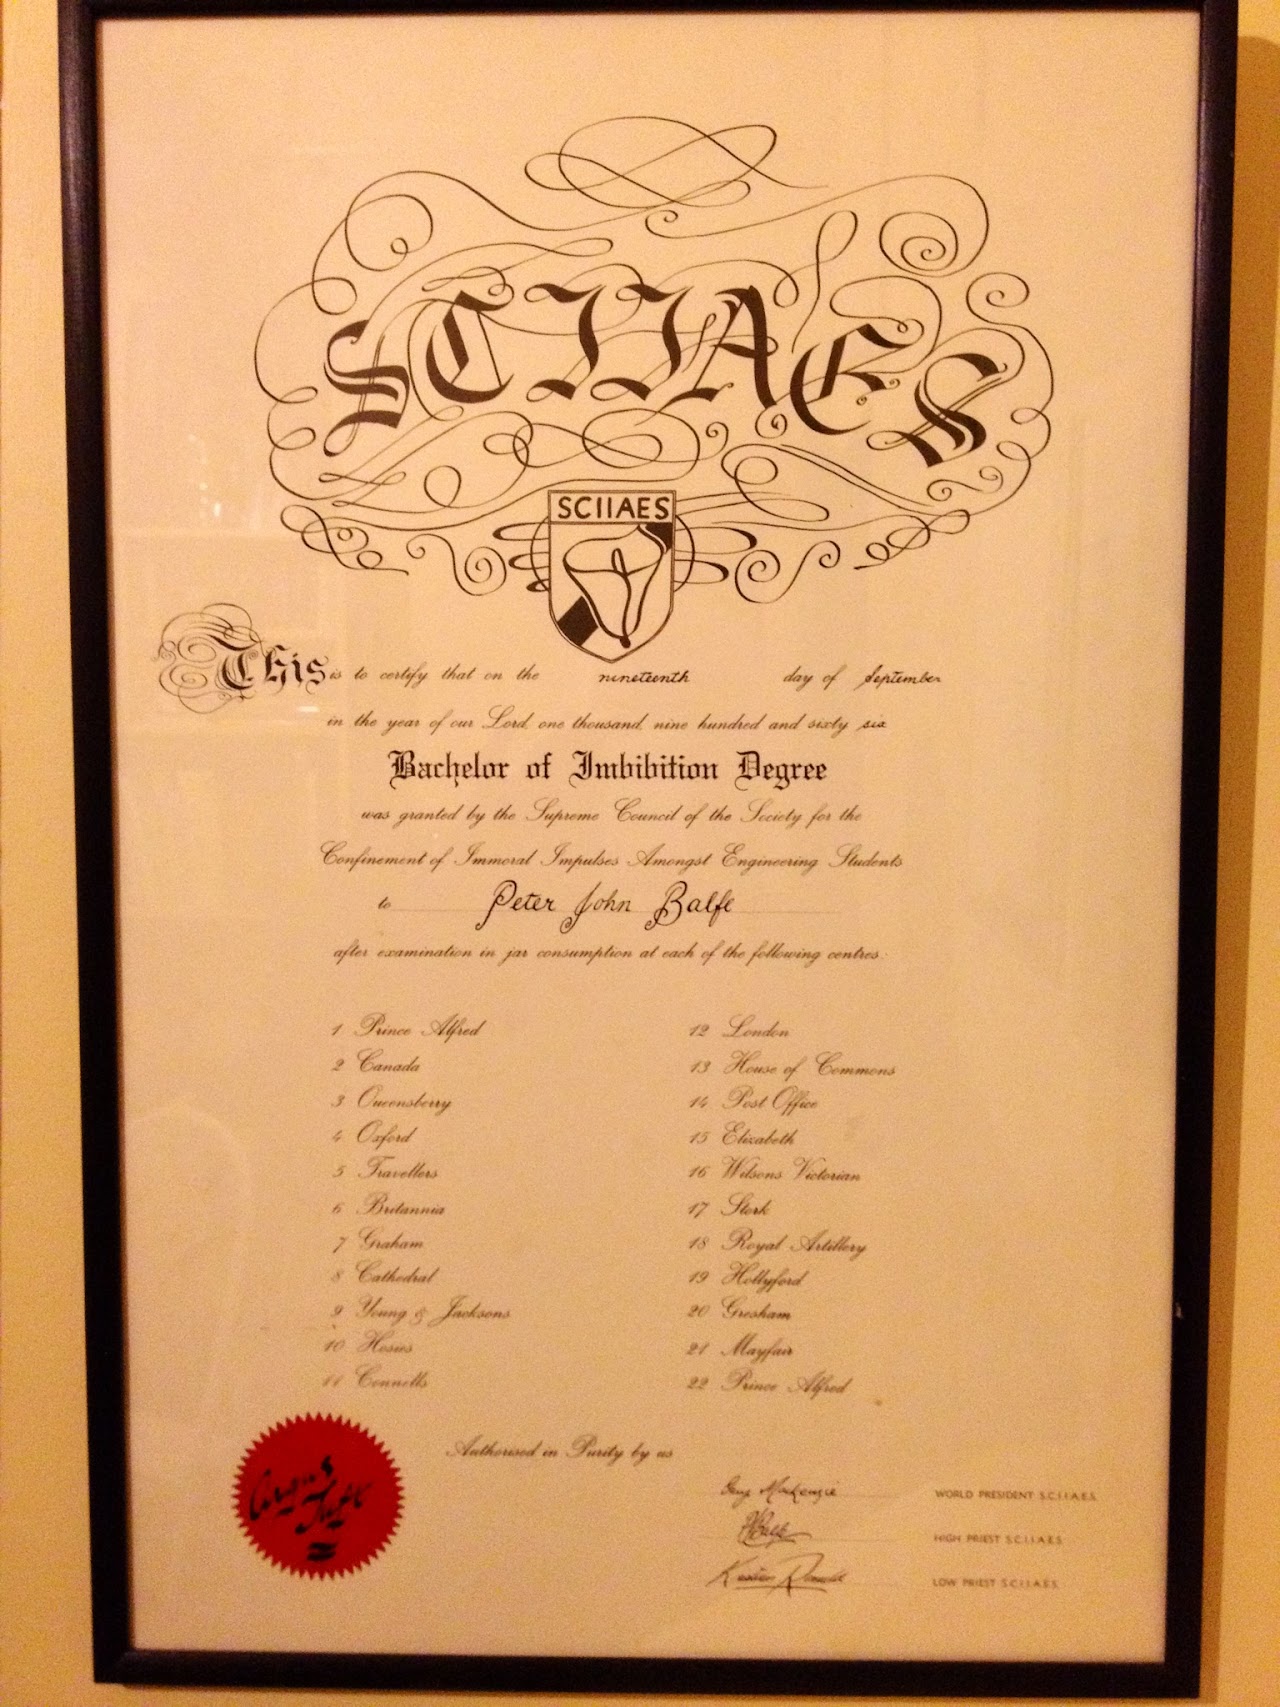 SCIIAES
SCIIAES
This is to certify that on the nineteenth day of September
in the year of our Lord, one thousand, nine hundred and sixty six
Bachelor of Imbibition Degree
was granted by the Supreme Council of the Society for the
Confinement of Immoral Impulses Amongst Engineering Students
to Peter John Balfe
after examination in jar consumption at each of the following centres:
1 Prince Alfred
2 Canada
3 Queensberry
4 Oxford
5 Travellers
6 Britannia
7 Graham
8 Cathedral
9 Young & Jacksons
10 Hosies
11 Connells
12 London
13 House of Commons
14 Post Office
15 Elizabeth
16 Wilsons Victorian
17 Stork
18 Royal Artillery
19 Hollyford
20 Gresham
21 Mayfair
22 Prince Alfred
Authorised in Purity by us
MacKenzie WORLD PRESIDENT S.C.I.I.A.E.S.
PJBalfe HIGH PRIEST S.C.I.I.A.E.S.
LOW PRIEST S.C.I.I.A.E.S.